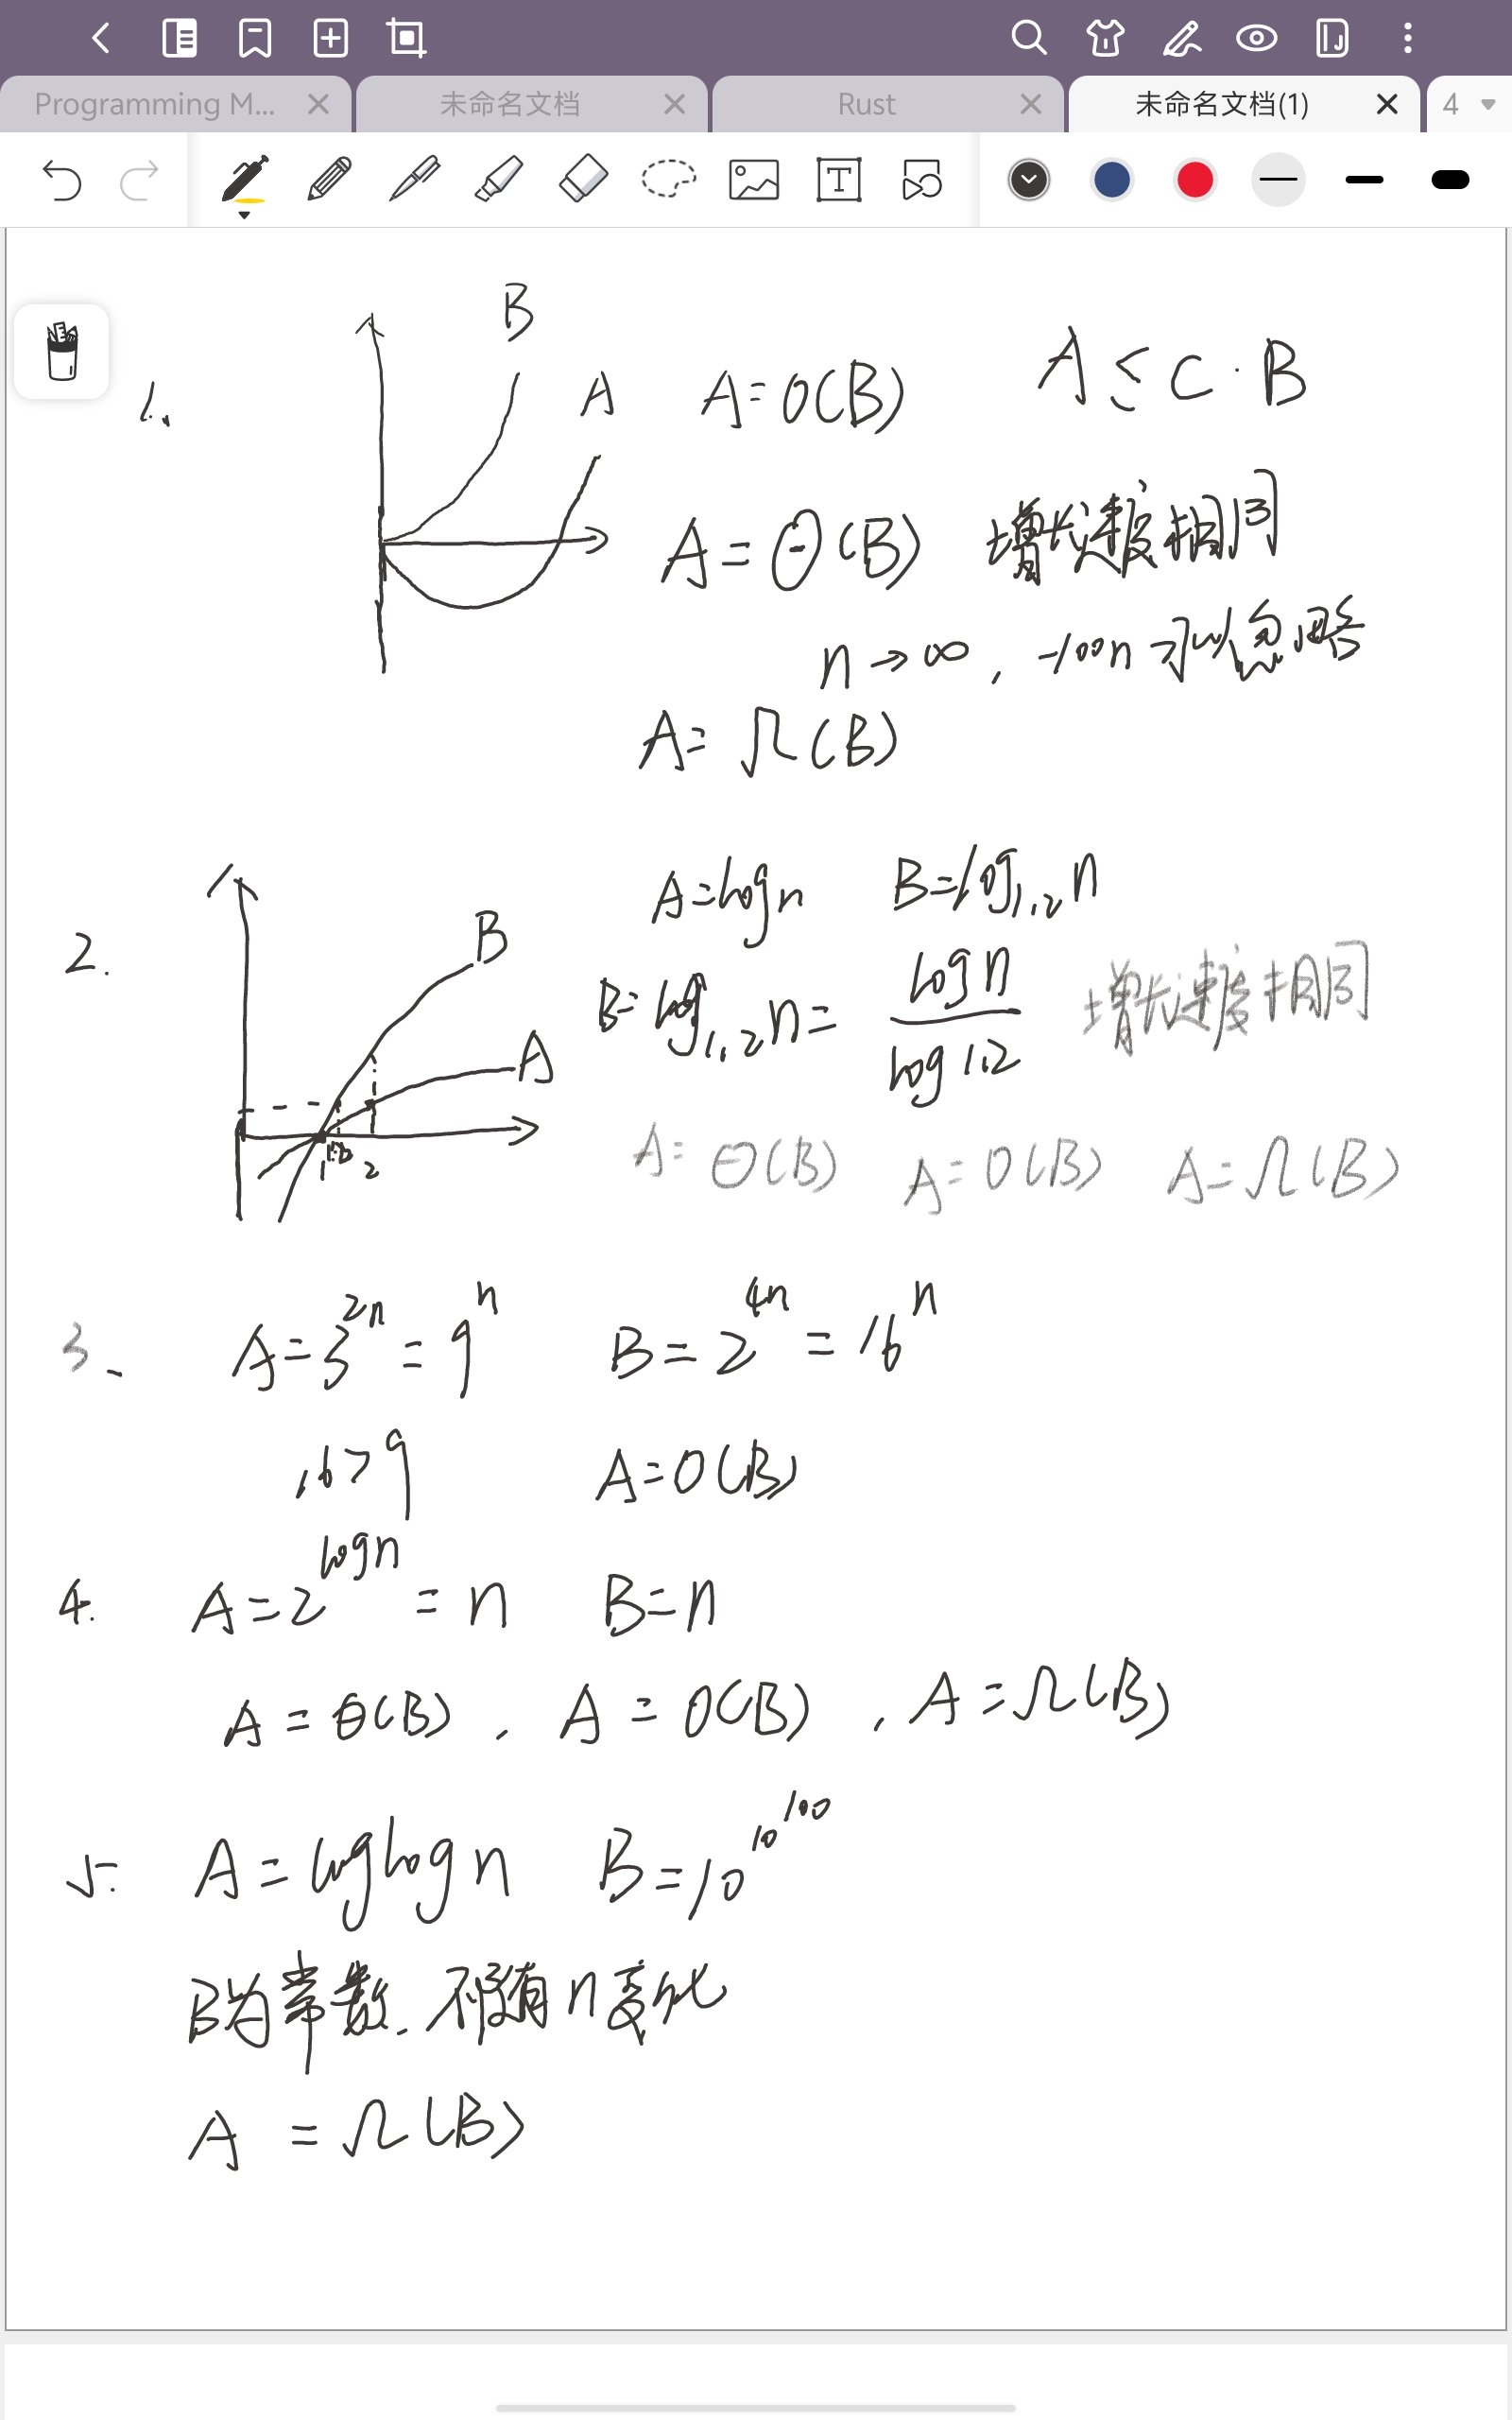 Programming M... 未命名文档 Rust 未命名文档(1) 4
1.
B
A
A=O(B) A≤C·B
A=Θ(B) 增长速度相同
n→∞, -100n 可以忽略
A=Ω(B)
2.
B
A
1 1.2 2
A=logn B=log₁.₂n
B=log₁.₂n= logn/log1.2 增长速度相同
A=Θ(B) A=O(B) A=Ω(B)
3、 A=3²ⁿ=9ⁿ B=2⁴ⁿ=16ⁿ
16>9 A=O(B)
4. A=2^logn=n B=n
A=Θ(B), A=O(B), A=Ω(B)
5. A=loglogn B=10^10^100
B为常数.不随n变化
A=Ω(B)